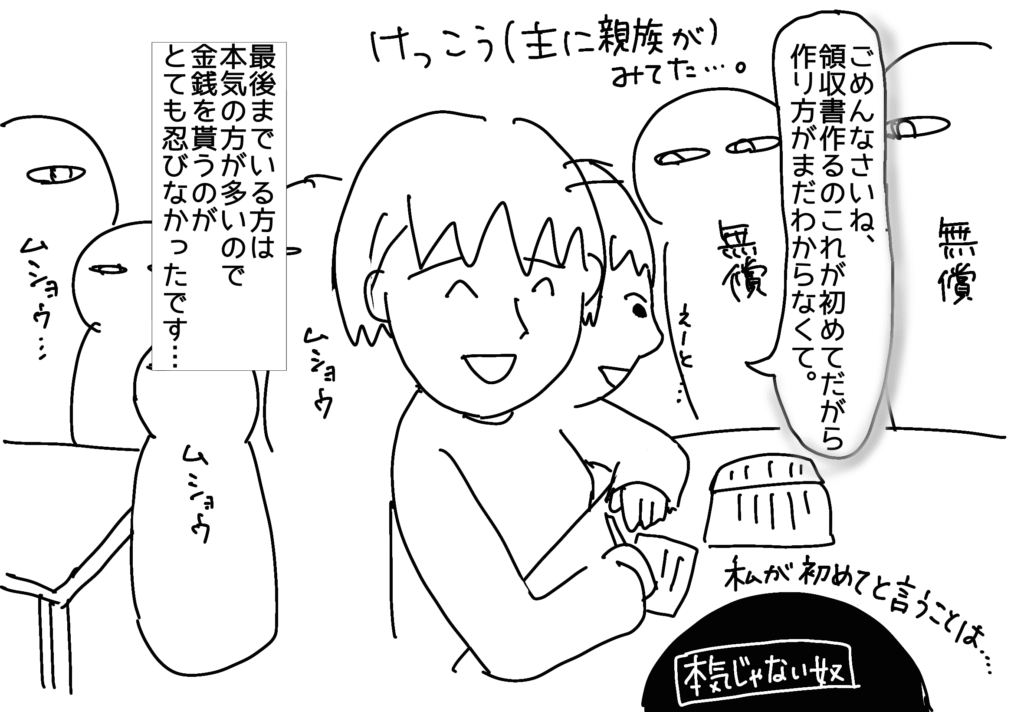 けっこう(主に親族が)
みてた…。
ごめんなさいね、
領収書作るのこれが初めてだがら
作り方がまだわからなくて。
無償
無償
えーと…
最後までいる方は
本気の方が多いので
金銭を貰うのが
とても忍びなかったです…
ムショウ…
ムショウ
ムショウ
私が初めてと言うことは…
本気じゃない奴